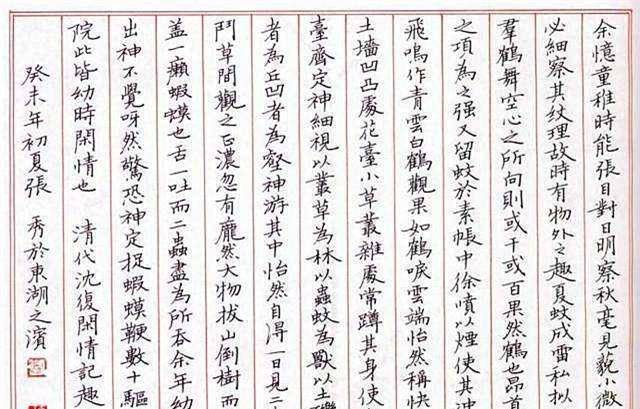 余憶童稚時能張目對日明察秋毫見藐小微
必細察其紋理故時有物外之趣夏蚊成雷私拟
羣鶴舞空心之所向則或千或百果然鶴也昂首
之項為之强又留蚊於素帳中徐噴以煙使其冲
飛鳴作青雲白鶴觀果如鶴唳雲端怡然稱快
土墻凹凸處花臺小草叢雜處常蹲其身使
臺齊定神細視以叢草為林以蟲蚊為獸以土礫
者為丘凹者為壑神游其中怡然自得一日見二
鬥草間觀之正濃忽有龐然大物拔山倒樹而
盖一癩蝦蟆也舌一吐而二蟲盡為所吞余年幼
出神不覺呀然驚恐神定捉蝦蟆鞭數十驅
院此皆幼時閑情也 清代沈復閑情記趣
癸未年初夏張 秀於東湖之濱